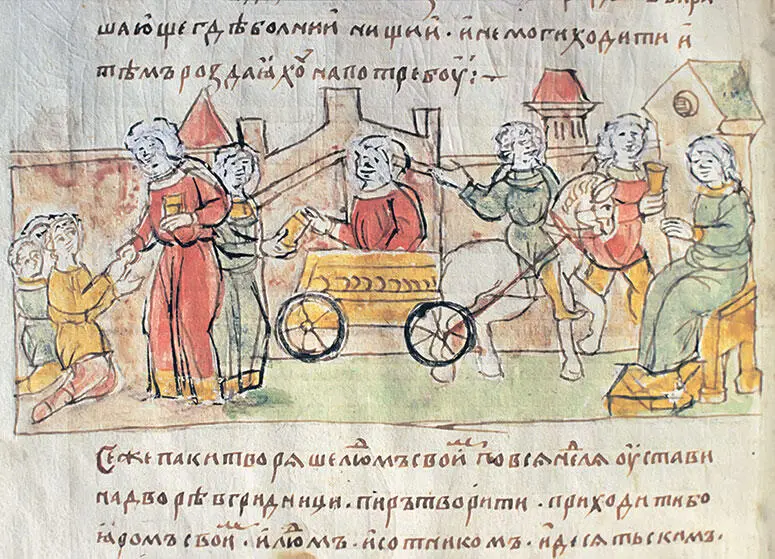 шающе гдѣ болнии нищии · и не моги ходити и
тѣмъ роздаꙗхоу на потребоу :~
Се же паки творяше лю҃мъ свои҃ по вся не҃ля оустави
на дворѣ в гридници · пиръ творити · приходити бо
ꙗромъ свои · и лю҃мъ · и сотникомъ · и десятьскимъ ·